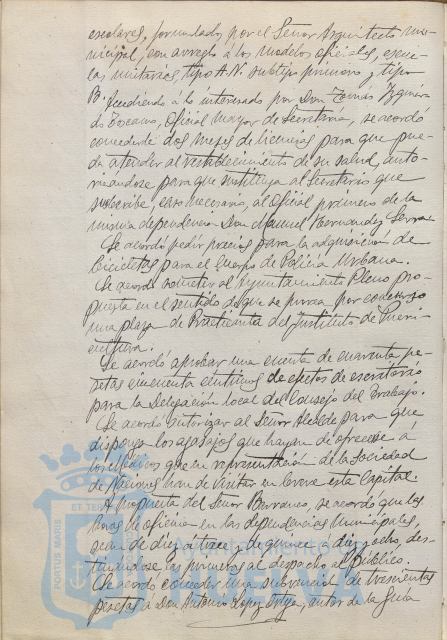 escolares, formulados por el Señor Arquitecto mu-
nicipal, con arreglo á los modelos oficiales, escue-
las unitarias, tipo A.N. subtipo primero y tipo
B. Accediendo á lo interesado por Don Tomás Izquier-
do Toscano, Oficial mayor de Secretaría, se acordó
concederle dos meses de licencia para que pue-
da atender al restablecimiento de su salud, auto-
rizándose para que sustituya al Secretario que
suscribe, caso necesario, al oficial primero de la
misma dependencia Don Manuel Hernandez Serra-
Se acordó pedir precios para la adquisición de
bicicletas para el Cuerpo de Policía Urbana.
Se acordó someter al Ayuntamiento Pleno pro-
puesta en el sentido de que se provea por concurso
una plaza de Practicante del Instituto de Pueri-
cultura.
Se acordó aprobar una cuenta de cuarenta pe-
setas cincuenta céntimos de efectos de escritorio
para la Delegación local del Consejo del Trabajo.
Se acordó autorizar al Señor Alcalde para que
disponga los agasajos que hayan de ofrecerse á
los Médicos que en representación de la Sociedad
de Naciones han de visitar en breve esta Capital.
A propuesta del Señor Barranco, se acordó que las
horas de oficina en las dependencias municipales,
sean de diez á trece y de quince á diez y ocho, des-
tinándose las primeras al despacho al Público.
Se acordó conceder una subvención de trescientas
pesetas á Don Antonio López Ortega, autor de la Guía
PORTUS MARIS
Ayuntamiento de
HUELVA